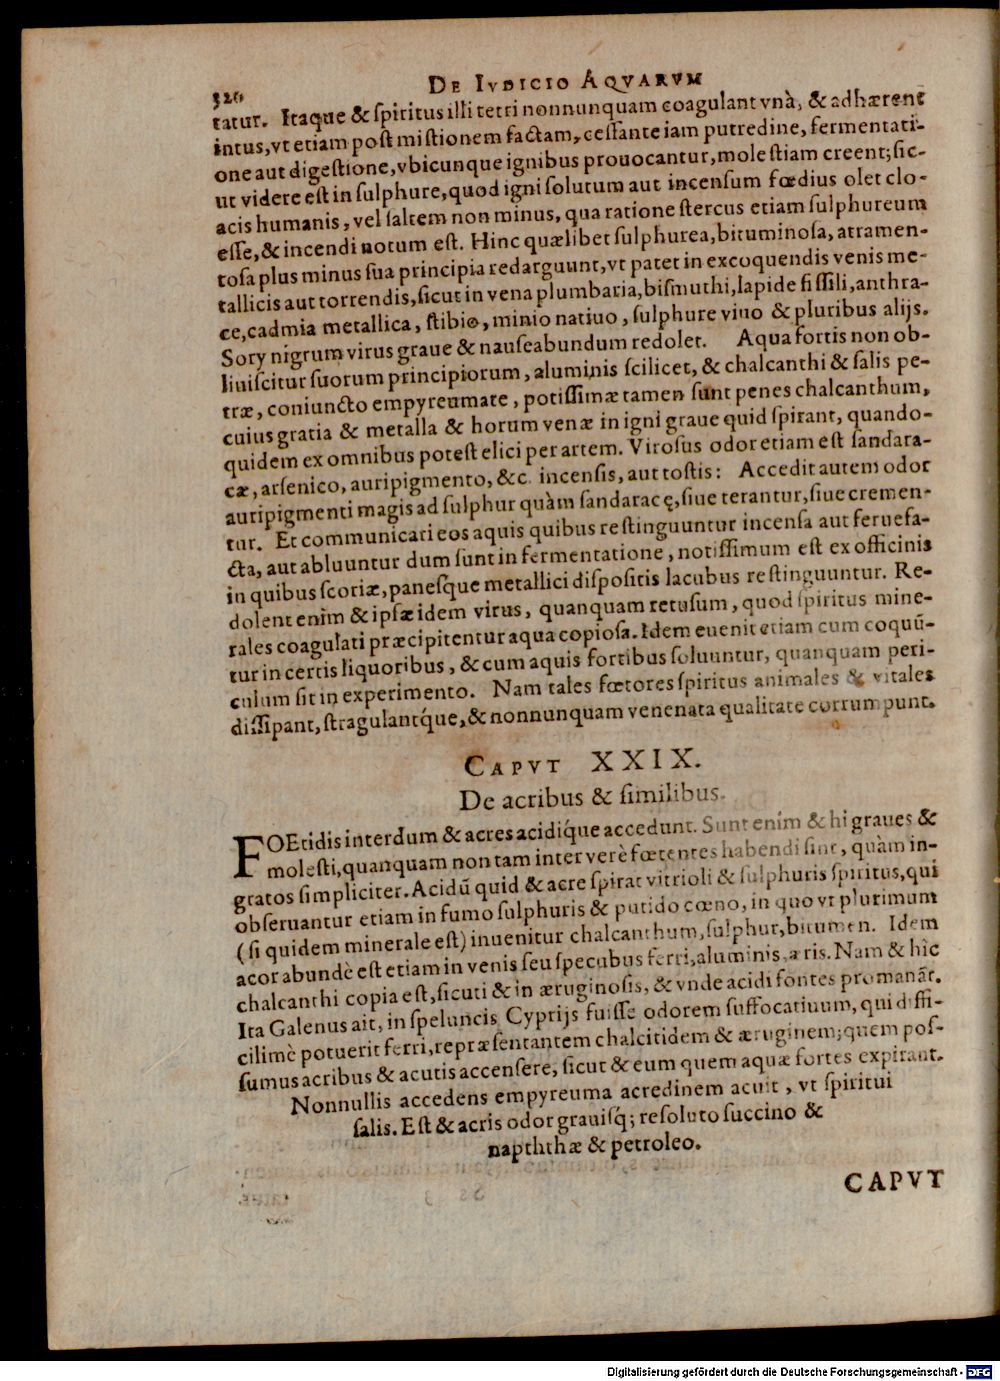 320
DE IVDICIO AQVARVM
tatur. Itaque & ſpiritus illi tetri nonnunquam coagulant vnà, & adhærent
intus, vt etiam poſt miſtionem factam, ceſſante iam putredine, fermentati-
one aut digeſtione, vbicunque ignibus prouocantur, moleſtiam creent; ſic-
ut videre eſt in ſulphure, quod igni ſolutum aut incenſum fœdius olet clo-
acis humanis, vel ſaltem non minus, qua ratione ſtercus etiam ſulphureum
eſſe, & incendi notum eſt. Hinc quælibet ſulphurea, bituminoſa, atramen-
toſa plus minus ſua principia redarguunt, vt patet in excoquendis venis me-
tallicis aut torrendis, ſicut in vena plumbaria, biſmuthi, lapide fiſſili, anthra-
ce, cadmia metallica, ſtibio, minio natiuo, ſulphure viuo & pluribus alijs.
Sory nigrum virus graue & nauſeabundum redolet. Aqua fortis non ob-
liuiſcitur ſuorum principiorum, aluminis ſcilicet, & chalcanthi & ſalis pe-
træ, coniuncto empyreumate, potiſſimæ tamen ſunt penes chalcanthum,
cuius gratia & metalla & horum venæ in igni graue quid ſpirant, quando-
quidem ex omnibus poteſt elici per artem. Viroſus odor etiam eſt ſandara-
cæ, arſenico, auripigmento, &c. incenſis, aut toſtis: Accedit autem odor
auripigmenti magis ad ſulphur quàm ſandaracę, ſiue terantur, ſiue cremen-
tur. Et communicari eos aquis quibus reſtinguuntur incenſa aut feruefa-
cta, aut abluuntur dum ſunt in fermentatione, notiſſimum eſt ex officinis
in quibus ſcoriæ, panesque metallici diſpoſitis lacubus reſtinguuntur. Re-
dolent enim & ipſæ idem virus, quanquam retuſum, quod ſpiritus mine-
rales coagulati præcipitentur aqua copioſa. Idem euenit etiam cum coquũ-
tur in certis liquoribus, & cum aquis fortibus ſoluuntur, quanquam peri-
culum ſit in experimento. Nam tales fœtores ſpiritus animales & vitales
diſſipant, ſtragulantq́ue, & nonnunquam venenata qualitate corrumpunt.
CAPVT XXIX.
De acribus & ſimilibus.
FOEtidis interdum & acres acidiq́ue accedunt. Sunt enim & hi graues &
moleſti, quanquam non tam inter verè fœtentes habendi ſint, quàm in-
gratos ſimpliciter. Acidũ quid & acre ſpirat vitrioli & ſulphuris ſpiritus, qui
obſeruantur etiam in fumo ſulphuris & putido cœno, in quo vt plurimum
(ſi quidem minerale eſt) inuenitur chalcanthum, ſulphur, bitumen. Idem
acor abundè eſt etiam in venis ſeu ſpecubus ferri, aluminis, æris. Nam & hîc
chalcanthi copia eſt, ſicuti & in æruginoſis, & vnde acidi fontes promanãt.
Ita Galenus ait, in ſpeluncis Cyprijs fuiſſe odorem ſuffocatiuum, qui diffi-
cilimè potuerit ferri, repræſentantem chalcitidem & æruginem; quem poſ-
ſumus acribus & acutis accenſere, ſicut & eum quem aquæ fortes expirant.
Nonnullis accedens empyreuma acredinem acuit, vt ſpiritui
ſalis. Eſt & acris odor grauiſq́; reſoluto ſuccino &
napththæ & petroleo.
CAPVT
Digitalisierung gefördert durch die Deutsche Forschungsgemeinschaft - DFG